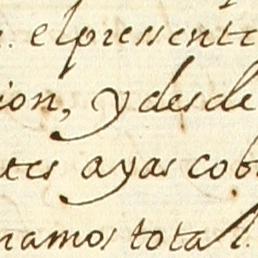 . el pressente
ion, y desde
tes ayas cob
namos total.